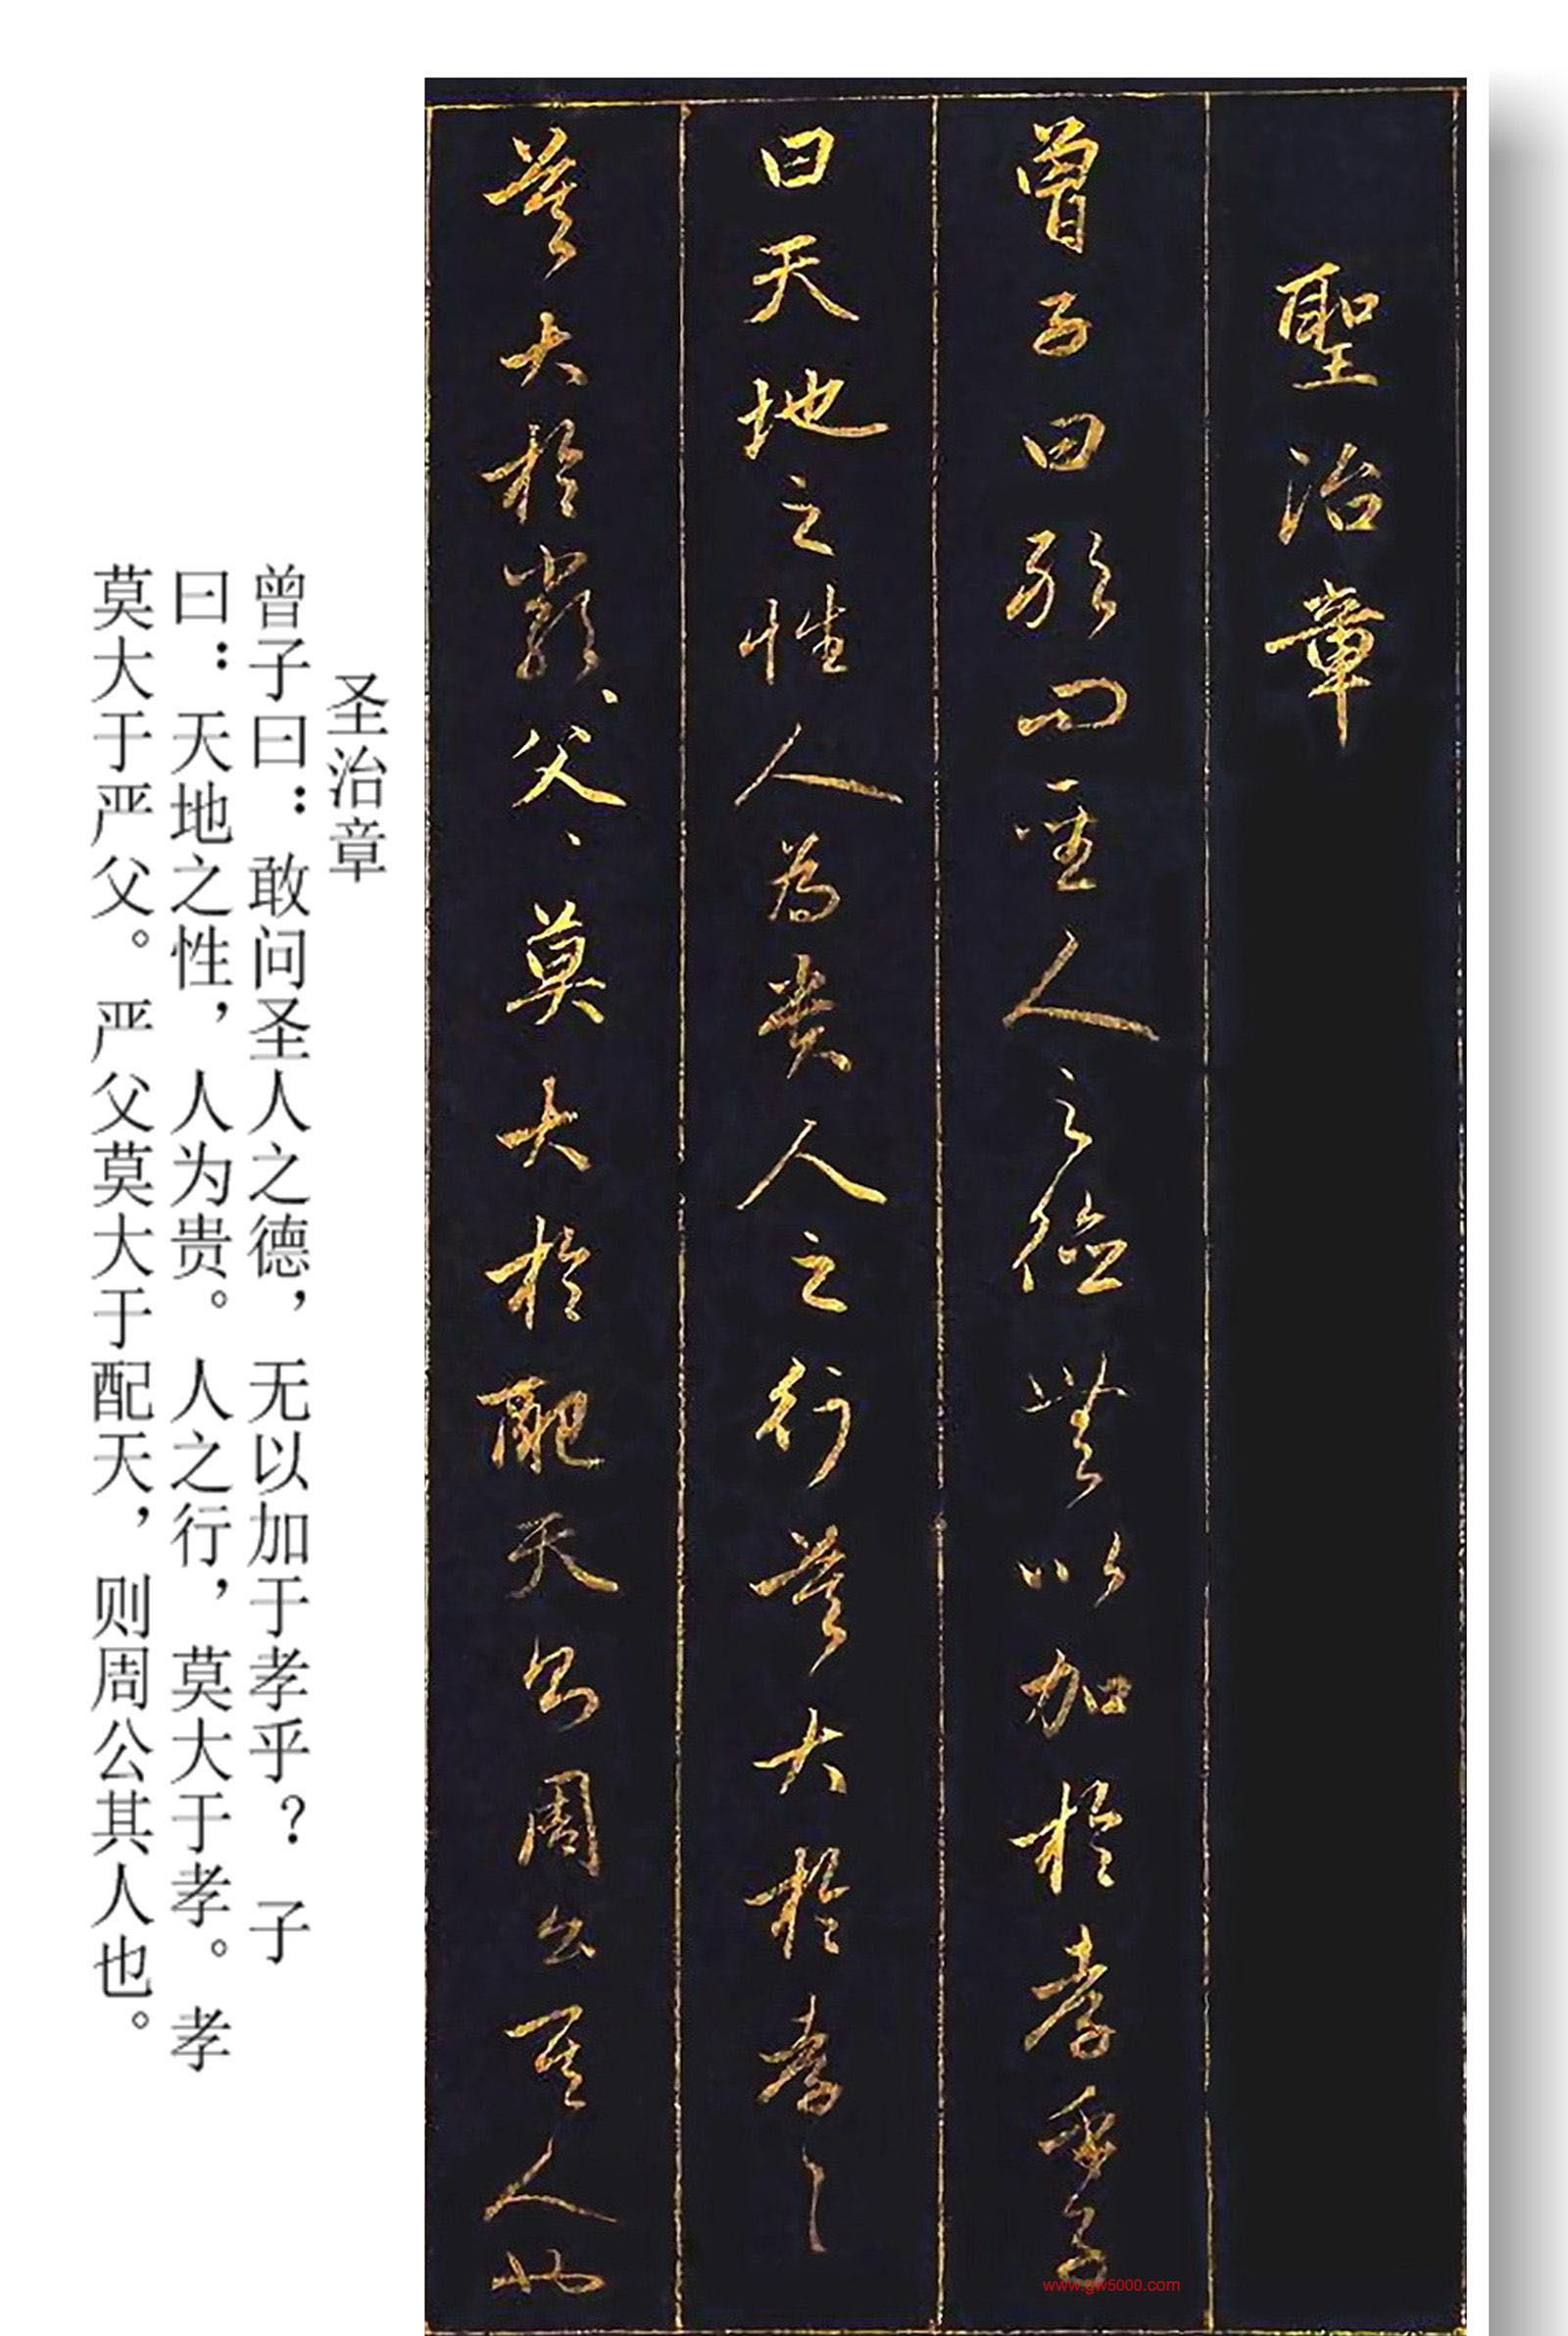 聖治章
曾子曰敢問聖人之德無以加於孝乎子
曰天地之性人為貴人之行莫大於孝〻
莫大於嚴〻父〻莫大於配天則周公其人也
圣治章
曾子曰：敢问圣人之德，无以加于孝乎？子
曰：天地之性，人为贵。人之行，莫大于孝。孝
莫大于严父。严父莫大于配天，则周公其人也。
www.gw5000.com